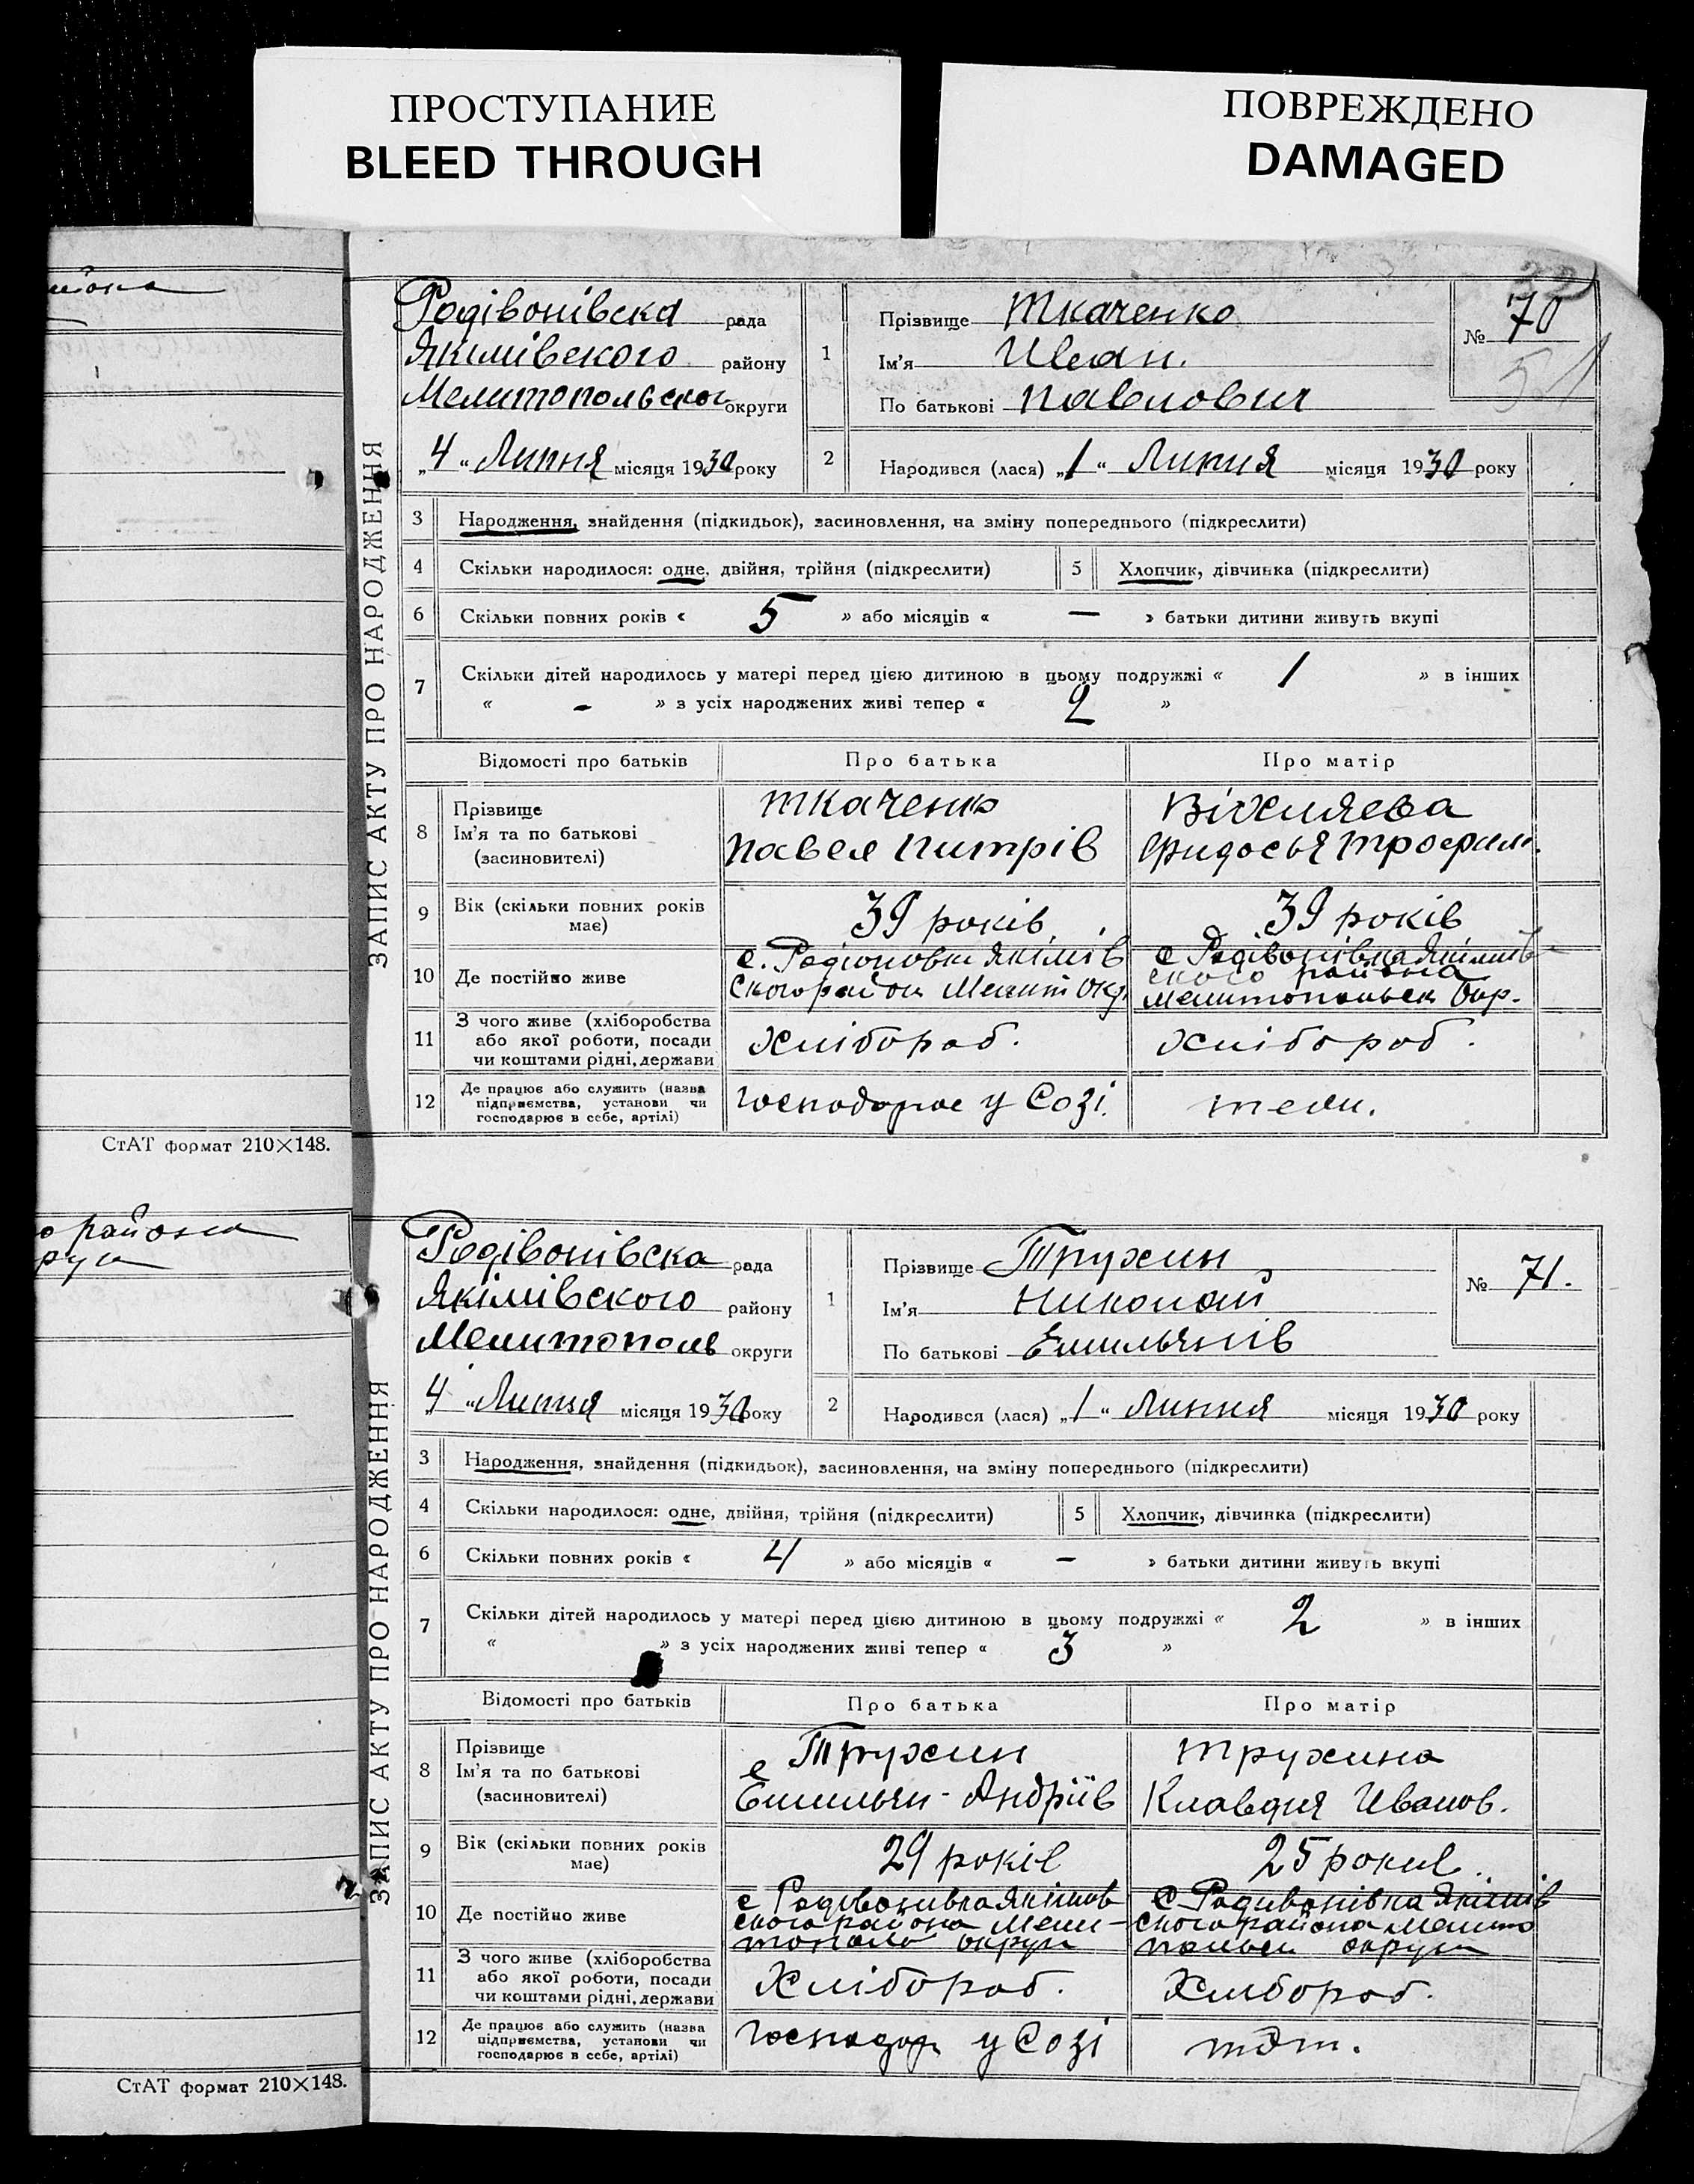 ПРОСТУПАНИЕ
BLEED THROUGH
ПОВРЕЖДЕНО
DAMAGED
СтАТ формат 210×148.
о района
СтАТ формат 210×148.
ЗАПИС АКТУ ПРО НАРОДЖЕННЯ
Родівонівска рада
Якімівского району
Мелитопольског округи
„4“ Липня місяця 1930 року
1
Прізвище Ткаченко
Ім'я Иван.
По батькові Павлович
№ 70
51
2 Народився (лася) „1“ Липня місяця 1930 року
3 Народження, знайдення (підкидьок), засиновлення, на зміну попереднього (підкреслити)
4 Скільки народилося: одне, двійня, трійня (підкреслити) 5 Хлопчик, дівчинка (підкреслити)
6 Скільки повних років « 5 » або місяців « — » батьки дитини живуть вкупі
7 Скільки дітей народилось у матері перед цією дитиною в цьому подружжі « 1 » в інших
« - » з усіх народжених живі тепер « 2 »
Відомості про батьків Про батька Про матір
8 Прізвище
Ім'я та по батькові
(засиновителі)
Ткаченко
Павел Питрів
Трофим.
9 Вік (скільки повних років
має)
39 років
39 років
10 Де постійно живе
с. Родіоновки Якімів
ского район Мелит окр.
с Родівонівка Якімів
ского района
Мелитопольск Окр.
11 З чого живе (хліборобства
або якої роботи, посади
чи коштами рідні, держави
Хлібороб.
Хлібороб.
12 Де працює або служить (назва
підприємства, установи чи
господарює в себе, артілі)
Господорюе у Созі.
ЗАПИС АКТУ ПРО НАРОДЖЕННЯ
Родівонівска рада
Якімівского району
Мелитополь округи
„4“ Липня місяця 1930 року
1
Прізвище Трухин
Ім'я Николай
По батькові Емильянів
№ 71.
2 Народився (лася) „1“ Липня місяця 1930 року
3 Народження, знайдення (підкидьок), засиновлення, на зміну попереднього (підкреслити)
4 Скільки народилося: одне, двійня, трійня (підкреслити) 5 Хлопчик, дівчинка (підкреслити)
6 Скільки повних років « 4 » або місяців « — » батьки дитини живуть вкупі
7 Скільки дітей народилось у матері перед цією дитиною в цьому подружжі « 2 » в інших
« » з усіх народжених живі тепер « 3 »
Відомості про батьків Про батька Про матір
8 Прізвище
Ім'я та по батькові
(засиновителі)
Трухин
Емильян - Андріїв
Трухина
Клавдия Иванов.
9 Вік (скільки повних років
має)
29 років
25 років.
10 Де постійно живе
с Родівонивка Якімов
ского района Мели-
округи
с Родивонівка Якімів
ского района Мелито
польск округи
11 З чого живе (хліборобства
або якої роботи, посади
чи коштами рідні, держави
Хлібороб.
Хлібороб.
12 Де працює або служить (назва
підприємства, установи чи
господарює в себе, артілі)
Господор у Созі